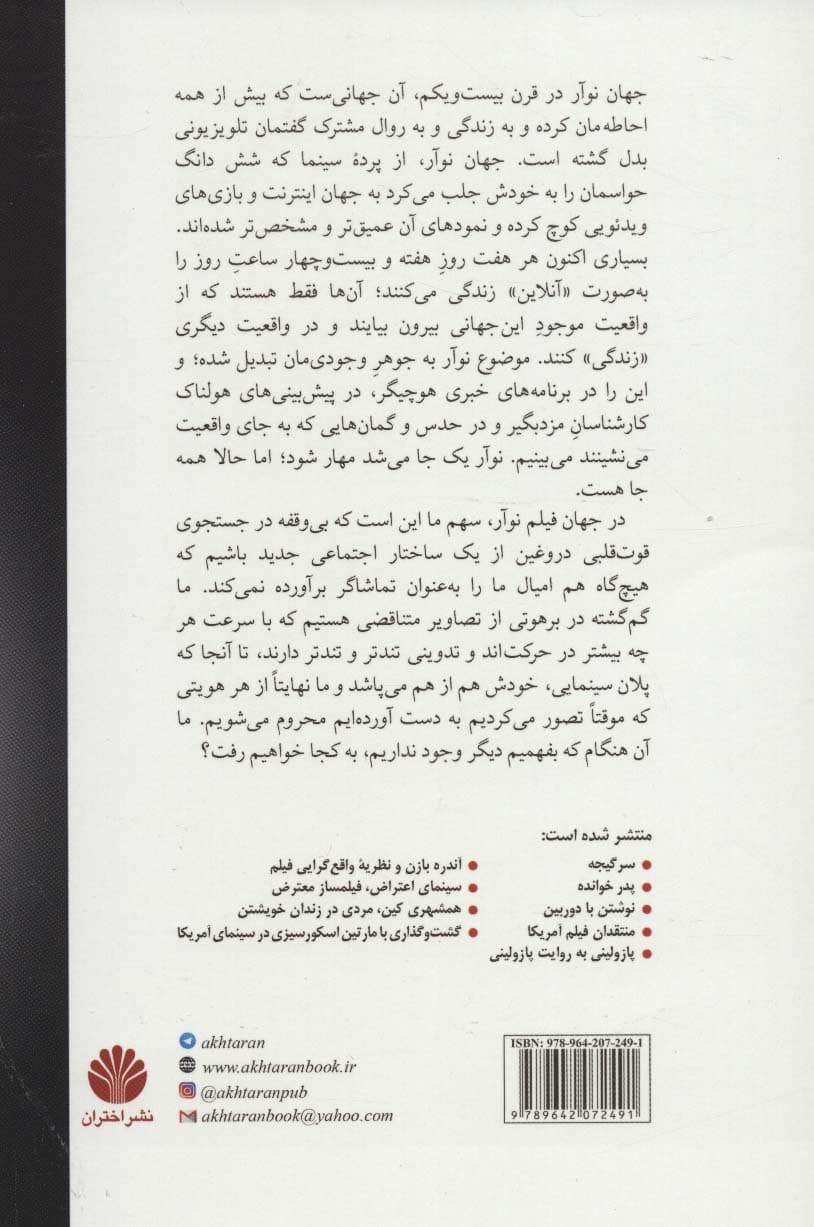 جهان نوآر در قرن بیست‌ویکم، آن جهانی‌ست که بیش از همه
احاطه‌مان کرده و به زندگی و به روال مشترک گفتمان تلویزیونی
بدل گشته است. جهان نوآر، از پردهٔ سینما که شش دانگ
حواسمان را به خودش جلب می‌کرد به جهان اینترنت و بازی‌های
ویدئویی کوچ کرده و نمودهای آن عمیق‌تر و مشخص‌تر شده‌اند.
بسیاری اکنون هر هفت روزِ هفته و بیست‌وچهار ساعتِ روز را
به‌صورت «آنلاین» زندگی می‌کنند؛ آن‌ها فقط هستند که از
واقعیت موجودِ این‌جهانی بیرون بیایند و در واقعیت دیگری
«زندگی» کنند. موضوع نوآر به جوهرِ وجودی‌مان تبدیل شده؛ و
این را در برنامه‌های خبری هوچیگر، در پیش‌بینی‌های هولناک
کارشناسانِ مزدبگیر و در حدس و گمان‌هایی که به جای واقعیت
می‌نشینند می‌بینیم. نوآر یک جا می‌شد مهار شود؛ اما حالا همه
جا هست.
در جهان فیلم نوآر، سهم ما این است که بی‌وقفه در جستجوی
قوت‌قلبی دروغین از یک ساختار اجتماعی جدید باشیم که
هیچ‌گاه هم امیال ما را به‌عنوان تماشاگر برآورده نمی‌کند. ما
گم‌گشته در برهوتی از تصاویر متناقضی هستیم که با سرعت هر
چه بیشتر در حرکت‌اند و تدوینی تندتر و تندتر دارند، تا آنجا که
پلان سینمایی، خودش هم از هم می‌پاشد و ما نهایتاً از هر هویتی
که موقتاً تصور می‌کردیم به دست آورده‌ایم محروم می‌شویم. ما
آن هنگام که بفهمیم دیگر وجود نداریم، به کجا خواهیم رفت؟
منتشر شده است:
● سرگیجه
● پدر خوانده
● نوشتن با دوربین
● منتقدان فیلم آمریکا
● پازولینی به روایت پازولینی
● آندره بازن و نظریهٔ واقع‌گرایی فیلم
● سینمای اعتراض، فیلمساز معترض
● همشهری کین، مردی در زندان خویشتن
● گشت‌وگذاری با مارتین اسکورسیزی در سینمای آمریکا
akhtaran
www.akhtaranbook.ir
@akhtaranpub
akhtaranbook@yahoo.com
نشر اختران
ISBN: 978-964-207-249-1
9 789642 072491